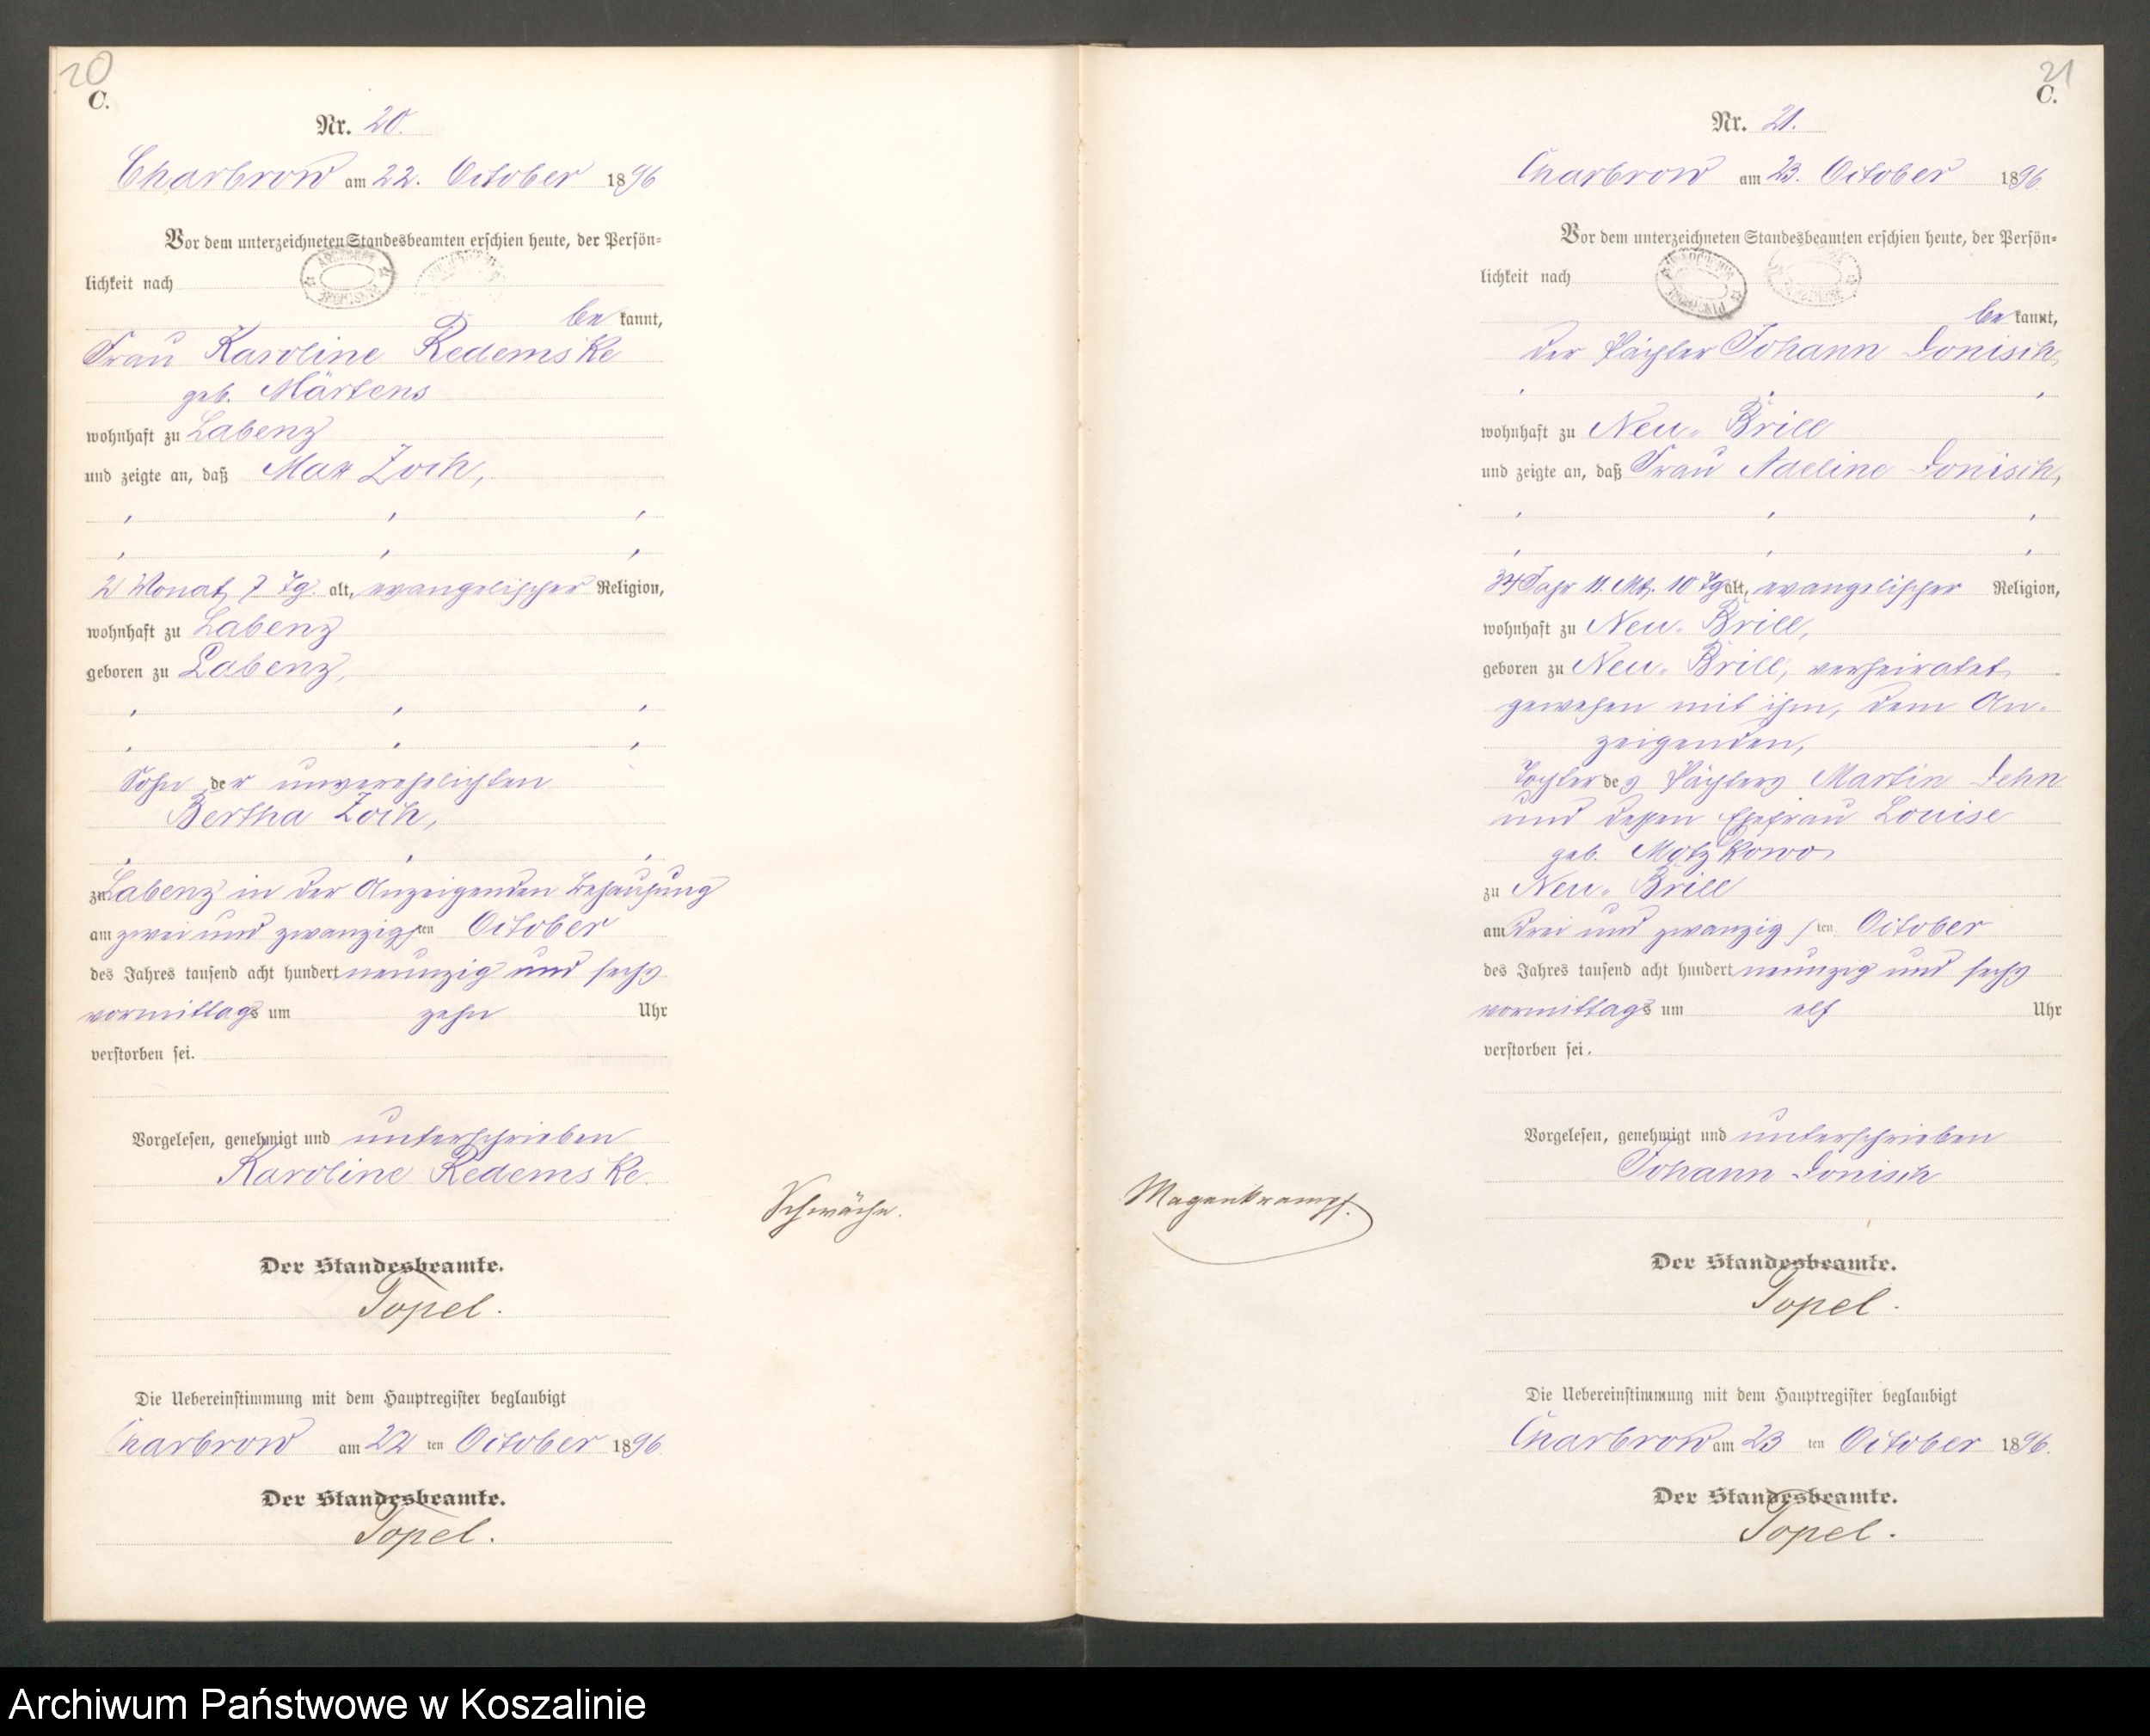 20
C.
Nr. 20.
Charbrow am 22. October 1896
Vor dem unterzeichneten Standesbeamten erschien heute, der Persön-
lichkeit nach
be kannt,
Frau Karoline Redemske
geb. Märtens
wohnhaft zu Labenz
und zeigte an, daß Max Zoch,
2 Monat, 7 Tg. alt, evangelischer Religion,
wohnhaft zu Labenz
geboren zu Labenz,
Sohn der unverehelichten
Bertha Zoch,
zu Labenz in der Anzeigenden Behausung
am zwei und zwanzigsten October
des Jahres tausend acht hundert neunzig und sechs
vormittags um zehn Uhr
verstorben sei.
Vorgelesen, genehmigt und unterschrieben
Karoline Redemske.
Schwäche.
Der Standesbeamte.
Topel.
Die Uebereinstimmung mit dem Hauptregister beglaubigt
Charbrow am 22 ten October 1896.
Der Standesbeamte.
Topel.
21
C.
Nr. 21.
Charbrow am 23. October 1896.
Vor dem unterzeichneten Standesbeamten erschien heute, der Persön-
lichkeit nach
be kannt,
der Pächter Johann Jonisch,
wohnhaft zu Neu-Brill
und zeigte an, daß Frau Adeline Jonisch,
34 Jahr 11. Mt. 10 Tg alt, evangelischer Religion,
wohnhaft zu Neu-Brill,
geboren zu Neu-Brill, verheiratet
gewesen mit ihm, dem An-
zeigenden,
Tochter des Pächters Martin Jehn
und dessen Ehefrau Louise
geb. Motzkowo
zu Neu-Brill
am drei und zwanzig sten October
des Jahres tausend acht hundert neunzig und sechs
vormittags um elf Uhr
verstorben sei.
Vorgelesen, genehmigt und unterschrieben
Johann Jonisch
Magenkrampf.
Der Standesbeamte.
Topel.
Die Uebereinstimmung mit dem Hauptregister beglaubigt
Charbrow am 23 ten October 1896.
Der Standesbeamte.
Topel.
Archiwum Państwowe w Koszalinie